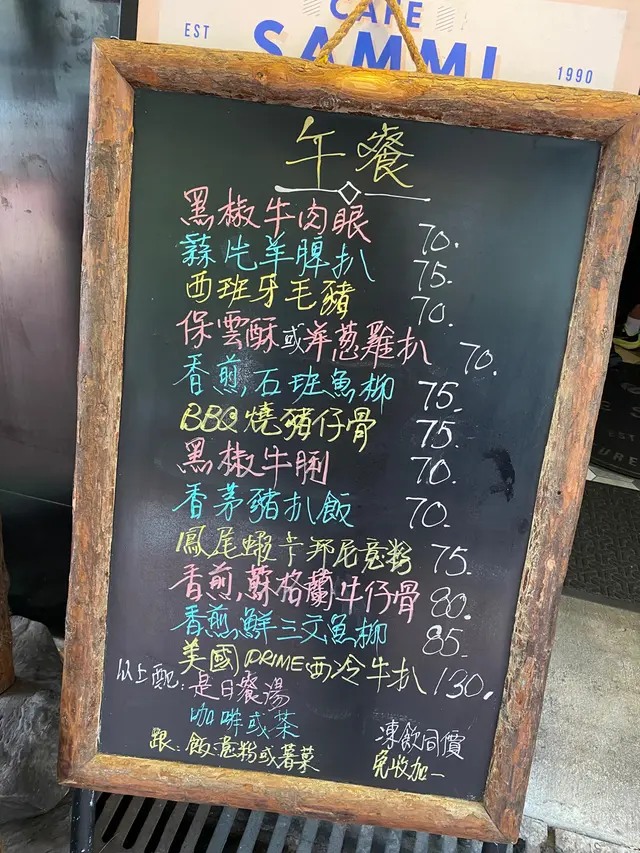 CAFE
EST SAMMI 1990
午餐
黑椒牛肉眼 70.
蒜片羊脾扒 75.
西班牙毛豬 70.
保雲酥或洋葱雞扒 70.
香煎石班魚柳 75.
BBQ燒豬仔骨 75.
黑椒牛脷 70.
香茅豬扒飯 70.
鳳尾蝦卡邦尼意粉 75.
香煎蘇格蘭牛仔骨 80.
香煎鮮三文魚柳 85.
美國PRIME西冷牛扒 130.
以上配:是日餐湯
咖啡或茶 凍飲同價
跟:飯.意粉或薯菜 免收加一
EST